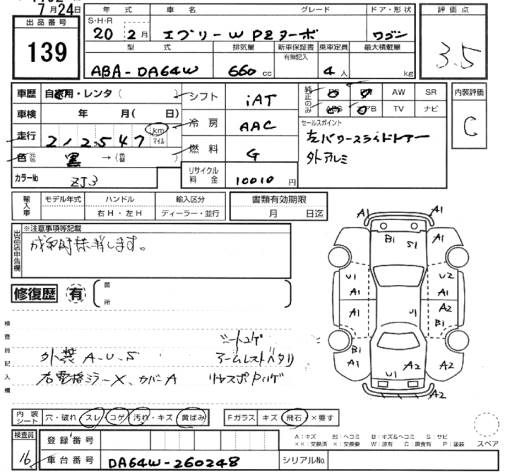 7月24日
出品番号 139
年式 車名 グレード ドア・形状
S・H・R 20年 2月 エブリーW PZターボ ワゴン
型式 排気量 新車保証書 有無記入 乗車定員 最大積載量
ABA-DA64W 660cc 4人 kg
評価点
3.5
車歴 自家用・レンタ( )
車検 年 月( )
走行 212547 km マイル
色 黒 →(色替)
カラーNo ZJ3
シフト iAT
冷房 AAC
燃料 G
リサイクル料金 10010円
純正のみ AW SR
TV ナビ
セールスポイント
左パワースライドドアー
外アルミ
内装評価
C
輸入車 モデル年式 ハンドル 輸入区分
右H・左H ディーラー・並行
書類有効期限
月 日迄
出品店申告欄 ※注意事項等記載
修復歴 有 箇所
検査員記入欄
外装A.U.S
右電格ミラーX、カバーA
シートコゲ
アームレストヘタリ
A1 A1
A1 B1 S1 A1
U1 U1 A2
A1 A1 A1
A2
B1 U1 B1
A1 U1 A2
A2 A2
内装シート 穴・破れ スレ コゲ 汚れ・キズ 黄ばみ
Fガラス キズ 飛石 ×要す
A:キズ B:ヘコミ
スペア
検査員 16
登録番号
車台番号 DA64W-260248 シリアルNo.